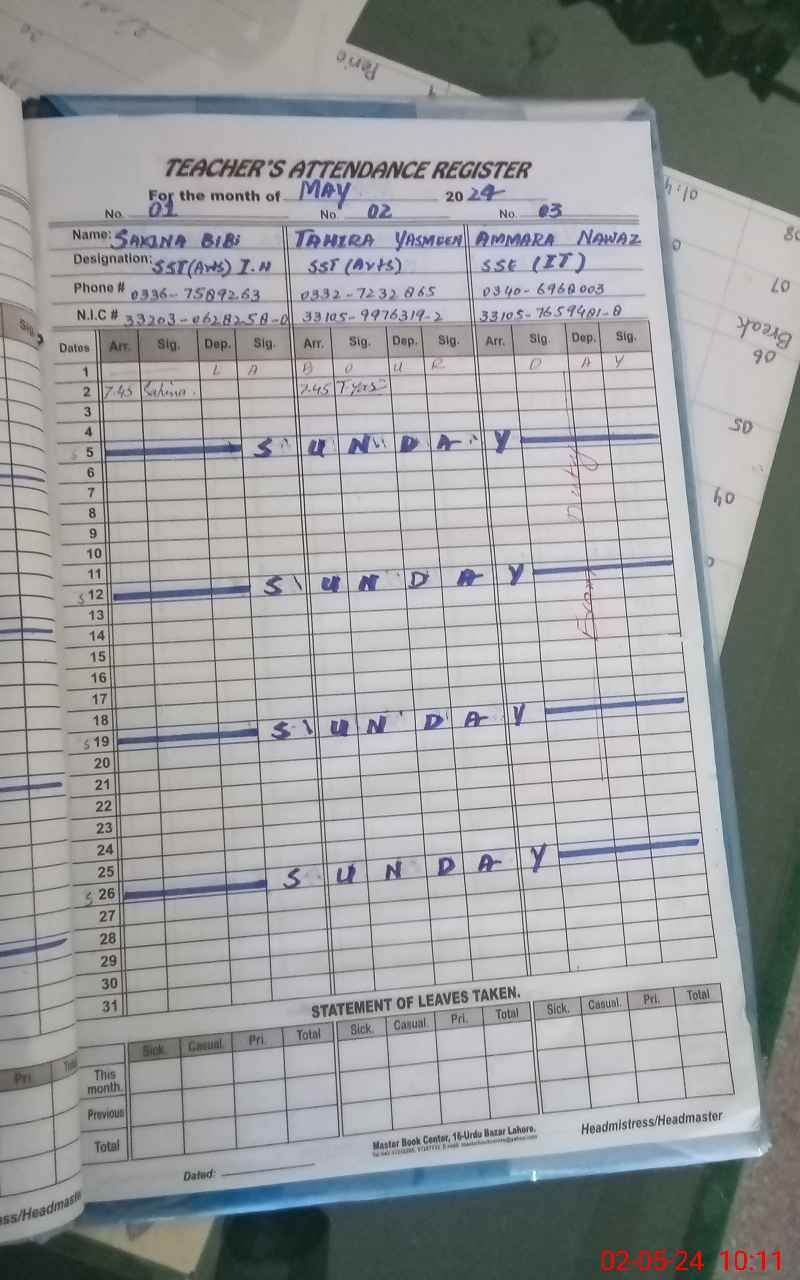 TEACHER'S ATTENDANCE REGISTER
For the month of MAY 2024
No. 01 No. 02 No. 03
Name: SAKINA BIBI TAHIRA YASMEEN AMMARA NAWAZ
Designation: SST(Arts) I.H SST (Arts) SSE (IT)
Phone # 0336-7589263 0332-7232865 0340-6968003
N.I.C # 33203-0628258-0 33105-9976319-2 33105-7659481-8
Dates Arr. Sig. Dep. Sig. Arr. Sig. Dep. Sig. Arr. Sig. Dep. Sig.
1 L A B O U R D A Y
2 7.45 Sakina. 7.45 T.Yas
3
4
S 5 S U N D A Y
6
7
8
9
10
11
S 12 S U N D A Y
13
14
15
16
17
18
S 19 S U N D A Y
20
21
22
23
24
25
S 26 S U N D A Y
27
28
29
30
31
Exam Duty
STATEMENT OF LEAVES TAKEN.
Sick. Casual. Pri. Total Sick. Casual. Pri. Total Sick. Casual. Pri. Total
This month.
Previous
Total
Master Book Center, 16-Urdu Bazar Lahore.
Headmistress/Headmaster
Dated:
Sig.
Pri. Total
ess/Headmaster
Perio
01:40
08
07
Break
06
05
04
02-05-24 10:11